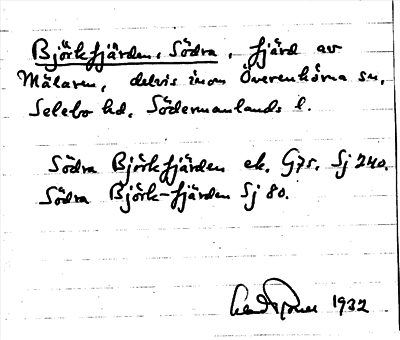 Björkfjärden, Södra, fjärd av
Mälaren, delvis inom Överenhörna sn,
Selebo hd, Södermanlands l.
Södra Björkfjärden ek. G75. Sj 240.
Södra Björk-fjärden Sj 80.
1932